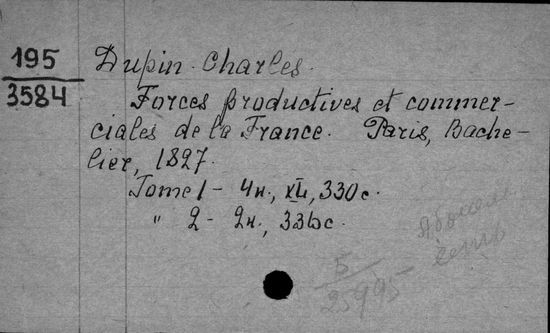 195
3584
Dupin Charles.
Forces productives et commer-
ciales de la France. Paris, Bache-
lier, 1827.
Tome 1 - 4н., XL, 330 с.
" 2 - 2н., 336 с.
Б
25995